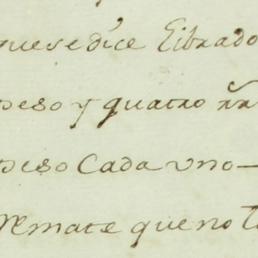 quesedíce Librado
peso y quatro rr̃
peso Cada uno—
Remate que no